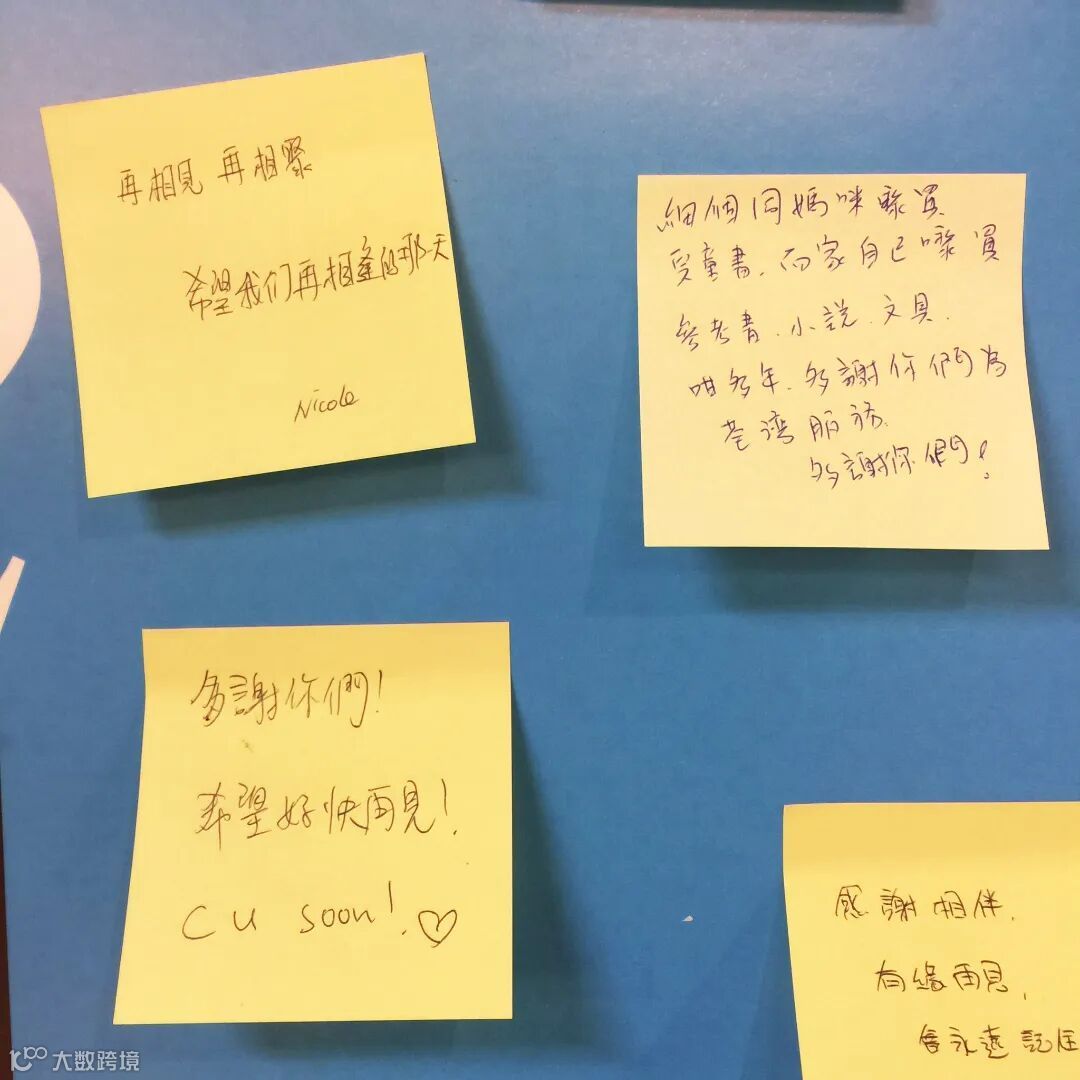 再相見 再相聚
希望我们再相逢的那一天
Nicole
細個同媽咪嚟買
兒童書、而家自己嚟買
參考書、小説、文具、
咁多年、多謝你們為
荃湾服務
多謝你們!
多謝你們!
希望好快再見!
CU soon! ♡
感謝相伴,
有緣再見,
會永遠記住
大数跨境